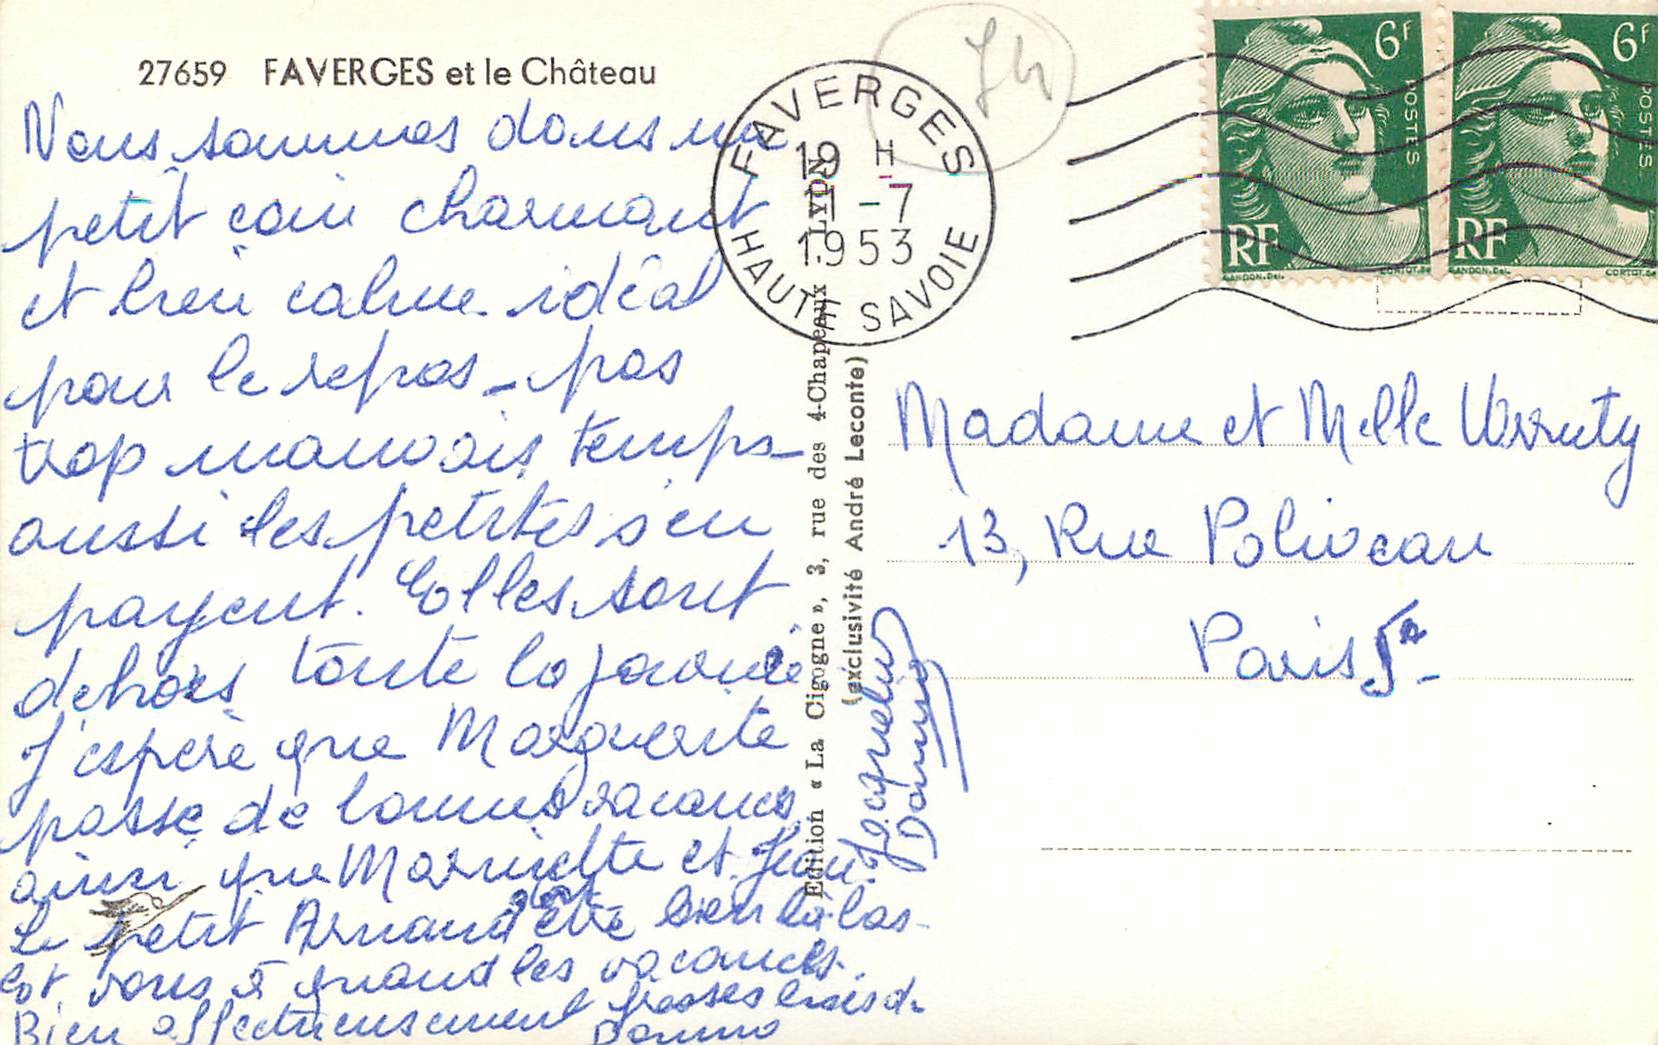 27659 FAVERGES et le Château
Nous sommes dans un
petit coin charmant
et bien calme idéal
pour le repos - pas
trop mauvais temps -
aussi les petites s'en
payent. Elles sont
dehors toute la journée
J'espère que Marguerite
passe de bonnes vacances
ainsi que Marinette et Jean.
Le petit Arnaud doit être bien là-bas -
Et vous à quand les vacances.
Bien affectueusement grosses bises de
Jacqueline
Edition « La Cigogne », 3, rue des 4-Chapeaux - LYON
(exclusivité André Leconte)
FAVERGES
19 H
1 -7
1953
HAUTE SAVOIE
74
6F
POSTES
RF
GANDON.Del.
CORTOT.Sc
6F
POSTES
RF
GANDON.Del.
CORTOT.Sc
Madame et Melle
13, Rue Poliveau
Paris 5e -